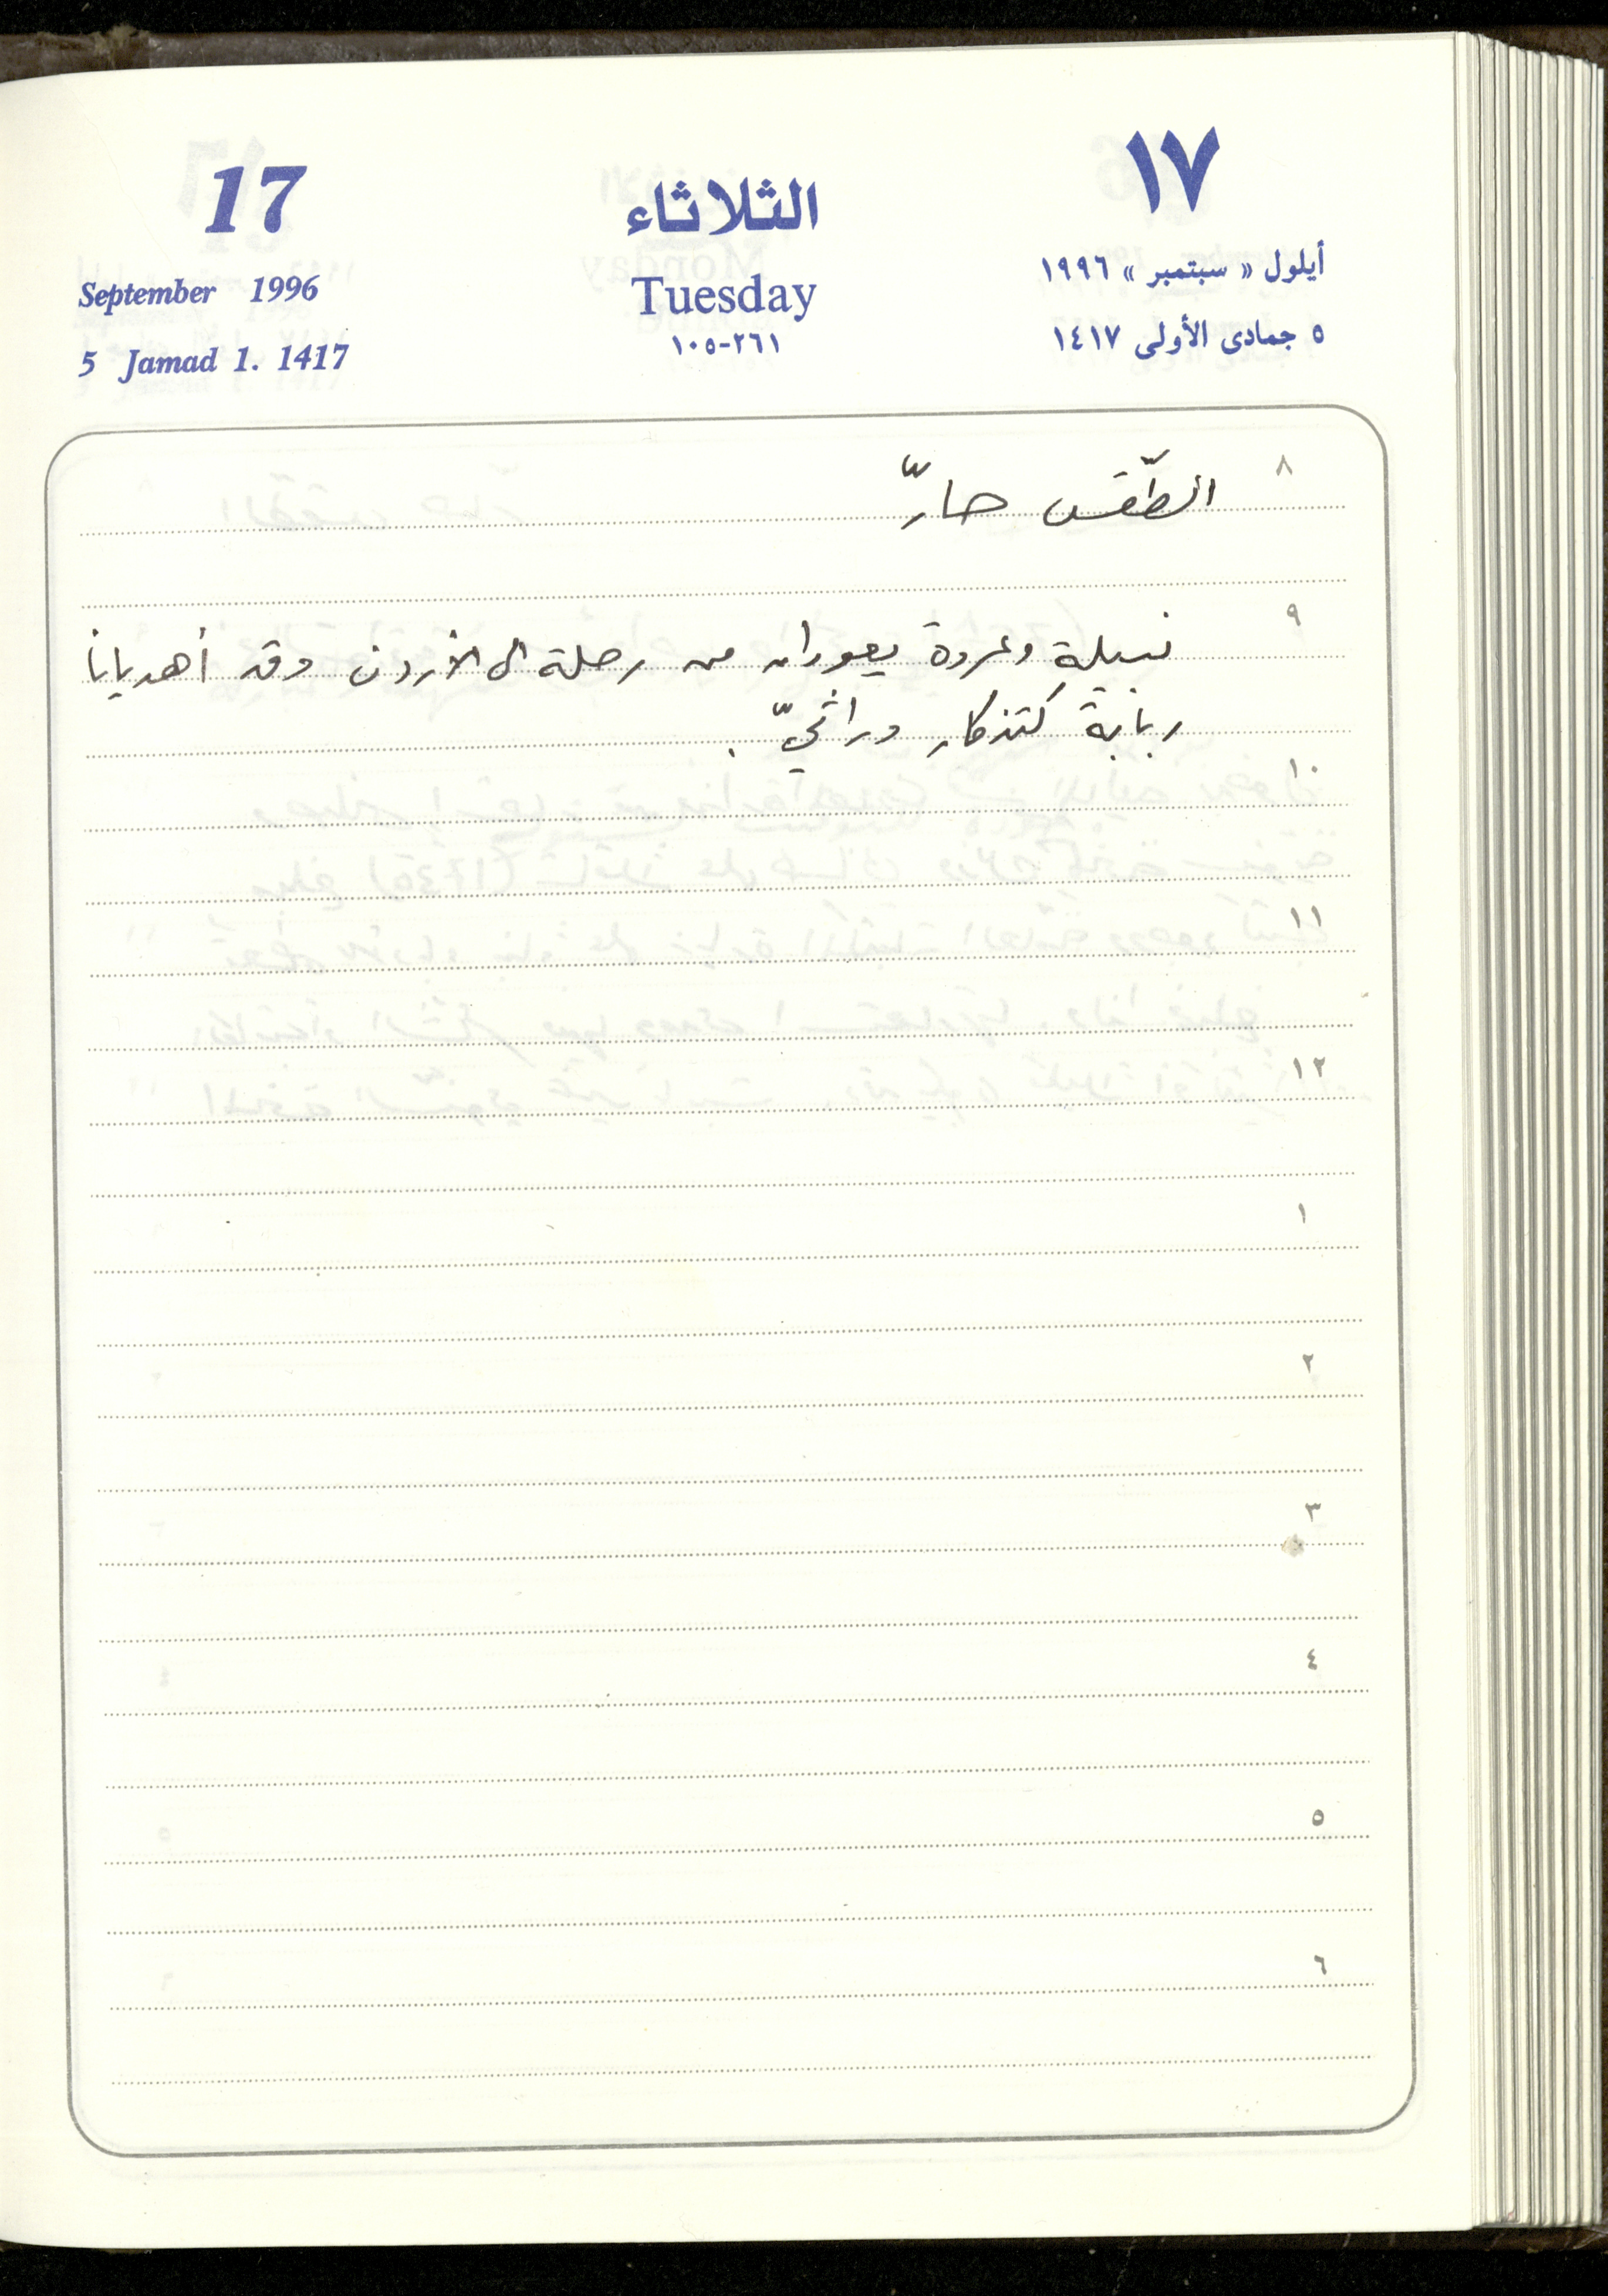 17 الثلاثاء ١٧
September 1996 Tuesday أيلول « سبتمبر » ١٩٩٦
5 Jamad 1. 1417 ٢٦١-١٠٥ ٥ جمادى الأولى ١٤١٧
٨ الطّقس حارّ
٩
نبيلة وعروة يعودان من رحلة الى الأردن وقد أهديانا
ربابة كتذكار وراثيّ .
١٠
١١
١٢
١
٢
٣
٤
٥
٦